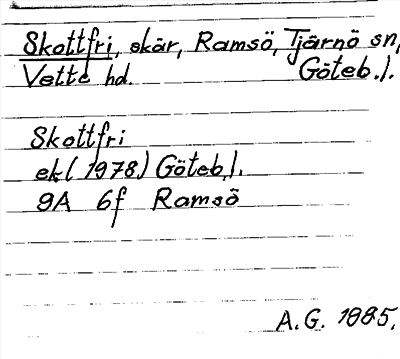 Skottfri, skär, Ramsö, Tjärnö sn,
Vette hd. Göteb.l.
Skottfri
ek (1978) Göteb.l.
9A 6f Ramsö
A.G. 1985.